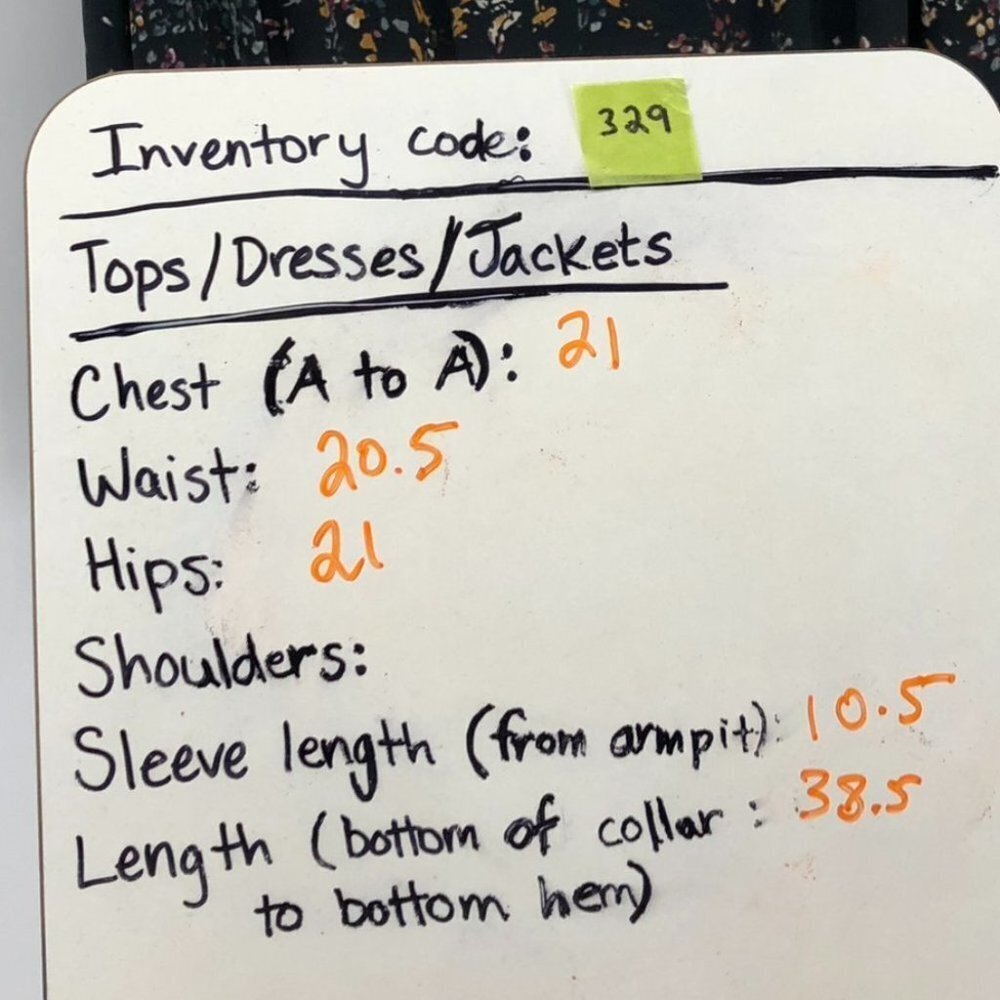 Inventory code: 329
Tops/Dresses/Jackets
Chest (A to A): 21
Waist: 20.5
Hips: 21
Shoulders:
Sleeve length (from armpit): 10.5
Length (bottom of collar : 38.5
to bottom hem)